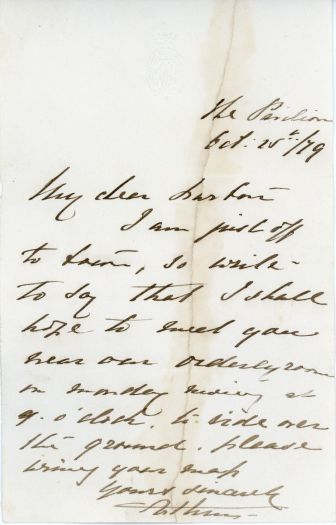 The Pavilion
Oct. 25th/79
My dear Barton
I am just off
to town, so write
to say that I shall
hope to meet you
near our orderlyroom
on monday morning at
9. o'clock. to ride over
the ground. please
bring your map
Yours sincerely
Arthur